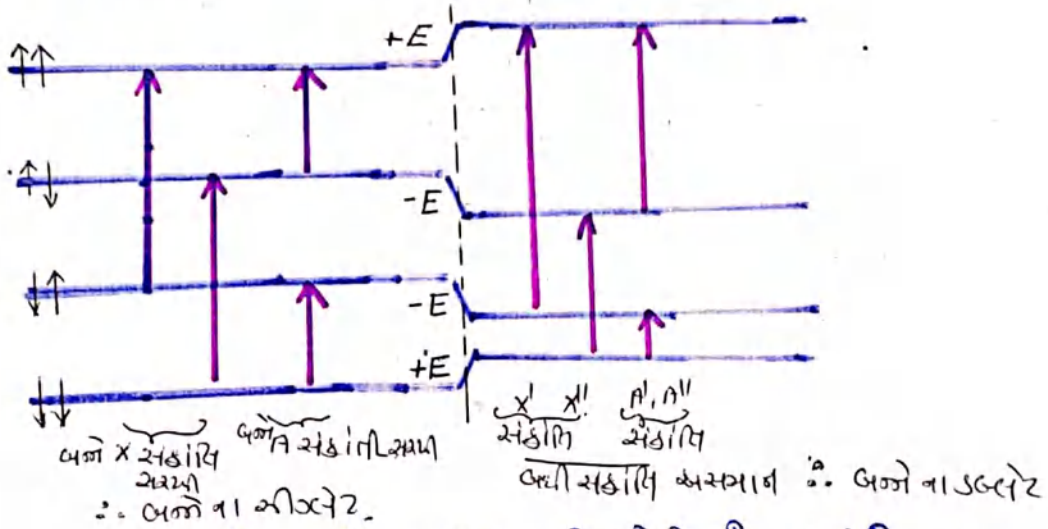 +E
↑↑
↑↓
-E
↓↑
-E
+E
↓↓
બન્ને X સંક્રાંતિ
સરખી
બન્ને A સંક્રાંતી સરખી
∴ બન્ને ના સીંગ્લેટ.
X' X''
સંક્રાંતિ
A', A''
સંક્રાંતિ
બધી સંક્રાંતિ અસમાન ∴ બન્ને ના ડબ્લેટ